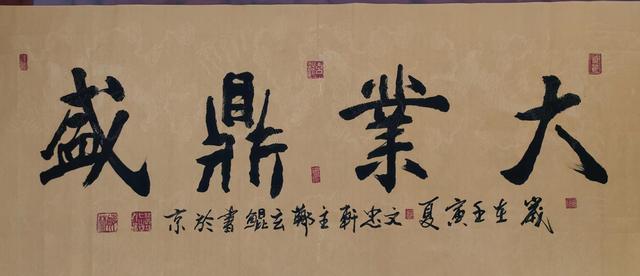 大業鼎盛
歲在壬寅夏文忠軒主鄭玄鯤書於京